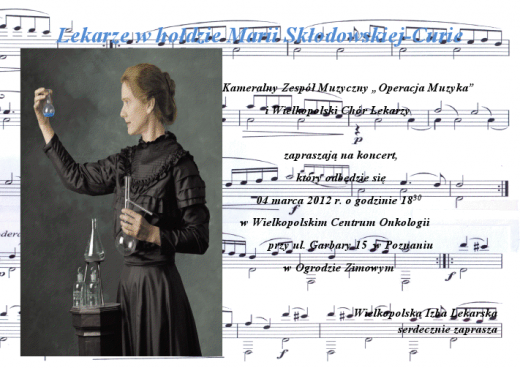 Lekarze w hołdzie Marii Skłodowskiej-Curie
Kameralny Zespół Muzyczny „Operacja Muzyka”
i Wielkopolski Chór Lekarzy
zapraszają na koncert,
który odbędzie się
04 marca 2012 r. o godzinie 18³⁰
w Wielkopolskim Centrum Onkologii
przy ul. Garbary 15 w Poznaniu
w Ogrodzie Zimowym
Wielkopolska Izba Lekarska
serdecznie zaprasza